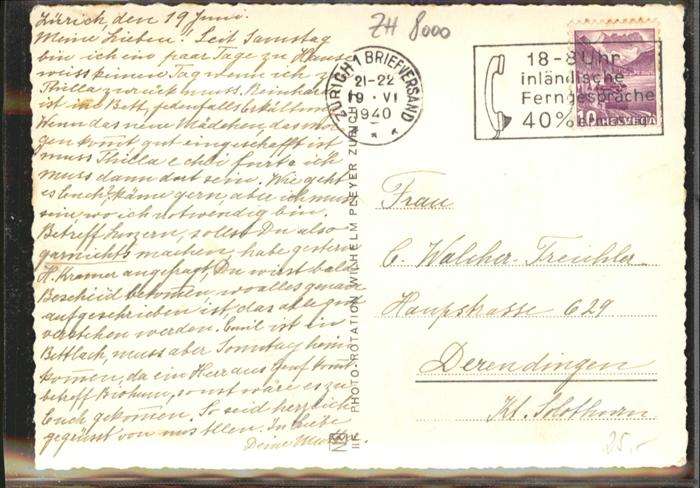 Zürich, den 19 Juni.
Meine Lieben! Seit Samstag
bin ich ein paar Tage zu Hause
weiss keinen Tag wenn ich z.
zurück muss. Reinhard
ist im Bett, jedenfalls Erkältung
Wenn das neue Mädchen, das mor-
gen kommt gut eingeschafft ist
muss fort u. ich
muss dann dort sein. Wie geht
es Euch? käme gern, aber ich muss
sein, wo ich notwendig bin.
Betreff Luzern, sollst Du also
garnichts machen, habe gestern
H. Kramer angefragt, Du wirst bald
Bescheid bekommen, wo alles genau
aufgeschrieben ist, das alles gut
verstehen werden. Emil ist in
Bettlach, muss aber Sonntag heim
kommen, da ein Herr aus Genf kommt
betreff sonst wäre es zu
Euch gekommen. So seid herzlich
gegrüsst von uns Allen. In Liebe
Deine
ZH 8000
ZÜRICH 1 BRIEFVERSAND
21-22
19·VI
1940
18-8 Uhr
inländische
Ferngespräche
40%
10 HELVETIA
PHOTO-ROTATION WILHELM PLEYER ZÜRICH
Frau
C. Walcher-Treichler
Hauptstrasse 629
Derendingen
Kt. Solothurn
25.-